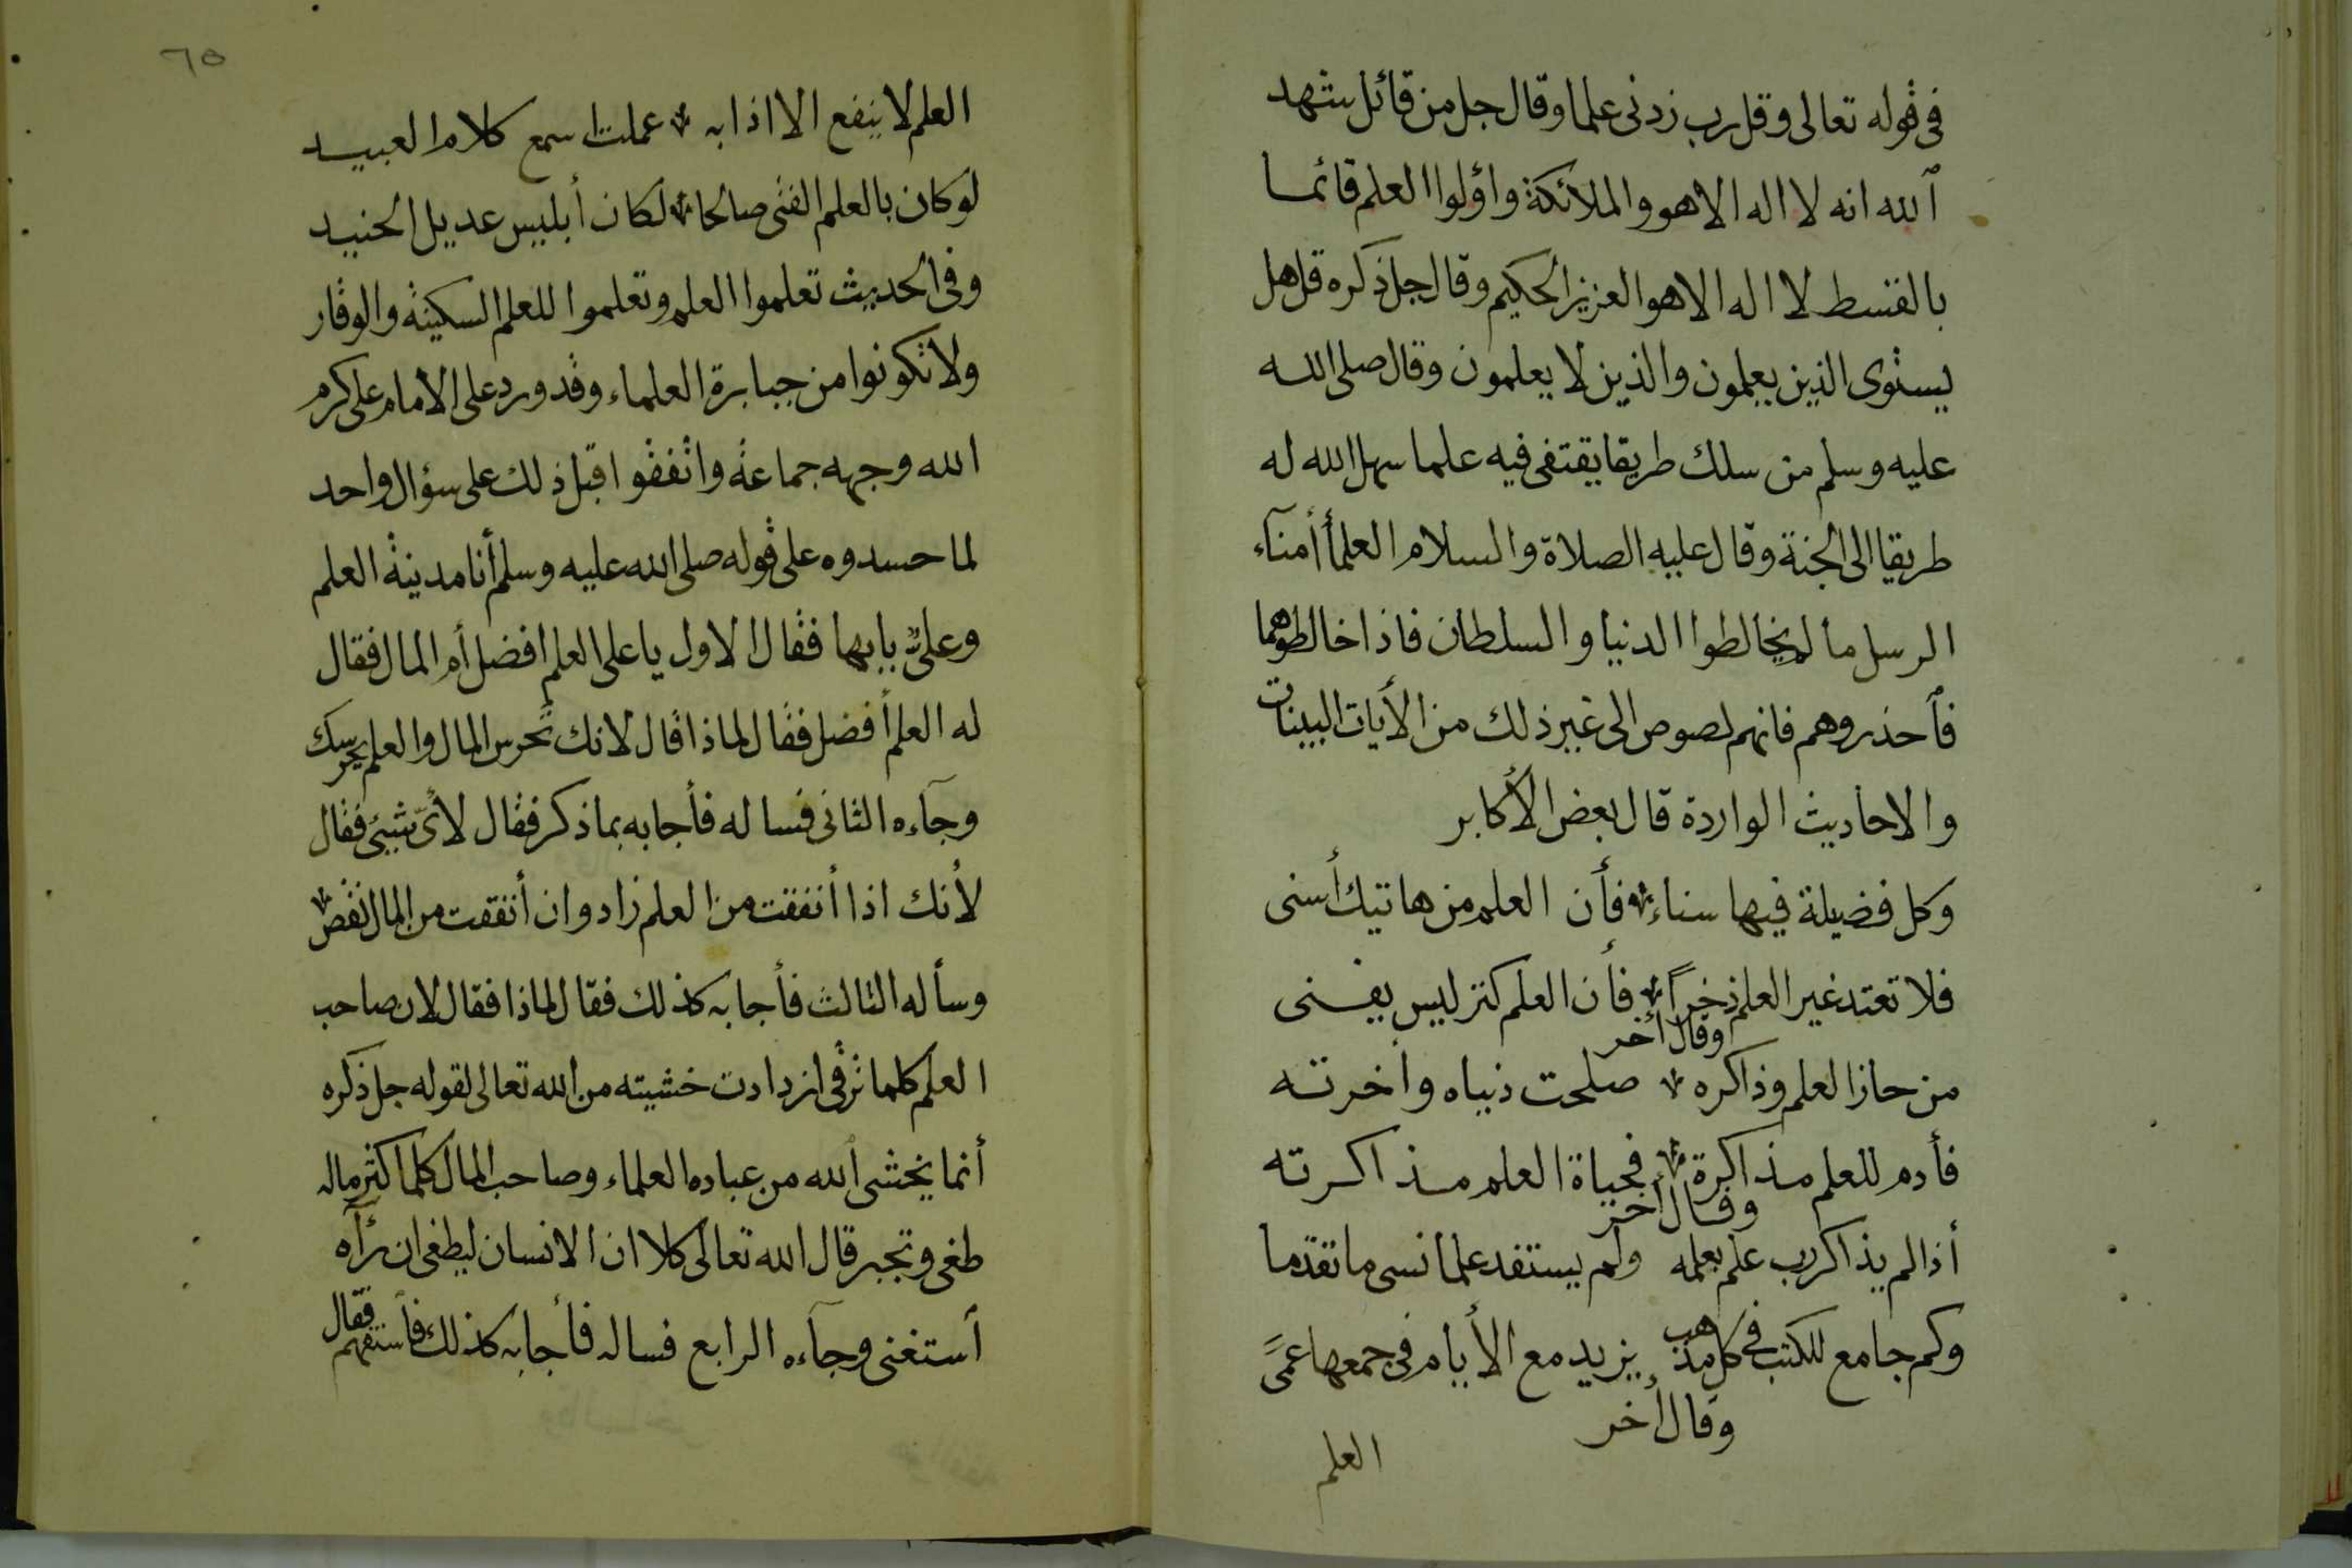 فى قوله تعالى وقل رب زدنى علما وقال جل من قائل شهد
ٱلله انه لا اله الا هو والملائكة واؤلوا العلم قائما
بالقسط لا اله الا هو العزيز الحكيم وقال جل ذكره قل هل
يستوى الذين يعلمون والذين لا يعلمون وقال صلى الله
عليه وسلم من سلك طريقا يقتفى فيه علما سهل الله له
طريقا الى الجنة وقال عليه الصلاة والسلام العلمأ أمنآء
الرسل ما لم يخالطوا الدنيا والسلطان فاذا خالطوهما
فٱحذروهم فانهم لصوص الى غير ذلك من الأيات البينات
والاحاديث الواردة قال بعض الأكابر
وكل فضيلة فيها سناء فأن العلم من هاتيك أسنى
فلا تعتد غير العلم ذخراً فأن العلم كنز ليس يفنى
وقال أخر
من حاز العلم وذاكره صلحت دنياه وأخرته
فأدم للعلم مذاكرة فحياة العلم مذاكرته
وقال أخر
أذا لم يذاكر رب علم بعلمه ولم يستفد علما نسى ما تقدما
وكم جامع للكتب فى كل مذهب يزيد مع الأيام فى جمعها عمىً
وقال أخر
العلم
٦٥
العلم لا ينفع الا اذا به عملت اسمع كلام العبيد
لو كان بالعلم الفتى صالحا لكان أبليس عديل الجنيد
وفى الحديث تعلموا العلم وتعلموا للعلم السكينة والوقار
ولا تكونوا من جبابرة العلماء وقد ورد على الامام على كرم
الله وجهه جماعة واتفقوا قبل ذلك على سؤال واحد
لما حسدوه على قوله صلى الله عليه وسلم أنا مدينة العلم
وعلىٌ بابها فقال الاول يا على العلم افضل أم المال فقال
له العلم أفضل فقال لماذا قال لانك تحرس المال والعلم يحرسك
وجآءه الثانى فساله فأجابه بما ذكر فقال لأىّ شيئ فقال
لأنك اذا أنفقت من العلم زاد وان أنفقت من المال نقص
وسأله الثالث فأجابه كذلك فقال لماذا فقال لان صاحب
العلم كلما ترقى ازدادت خشيته من الله تعالى لقوله جل ذكره
أنما يخشى ٱلله من عباده العلماء وصاحب المال كلما اكثر ماله
طغى وتجبر قال الله تعالى كلا ان الانسان ليطغى ان رأه
ٱستغنى وجآءه الرابع فساله فأجابه كذلك فٱستفهم فقال